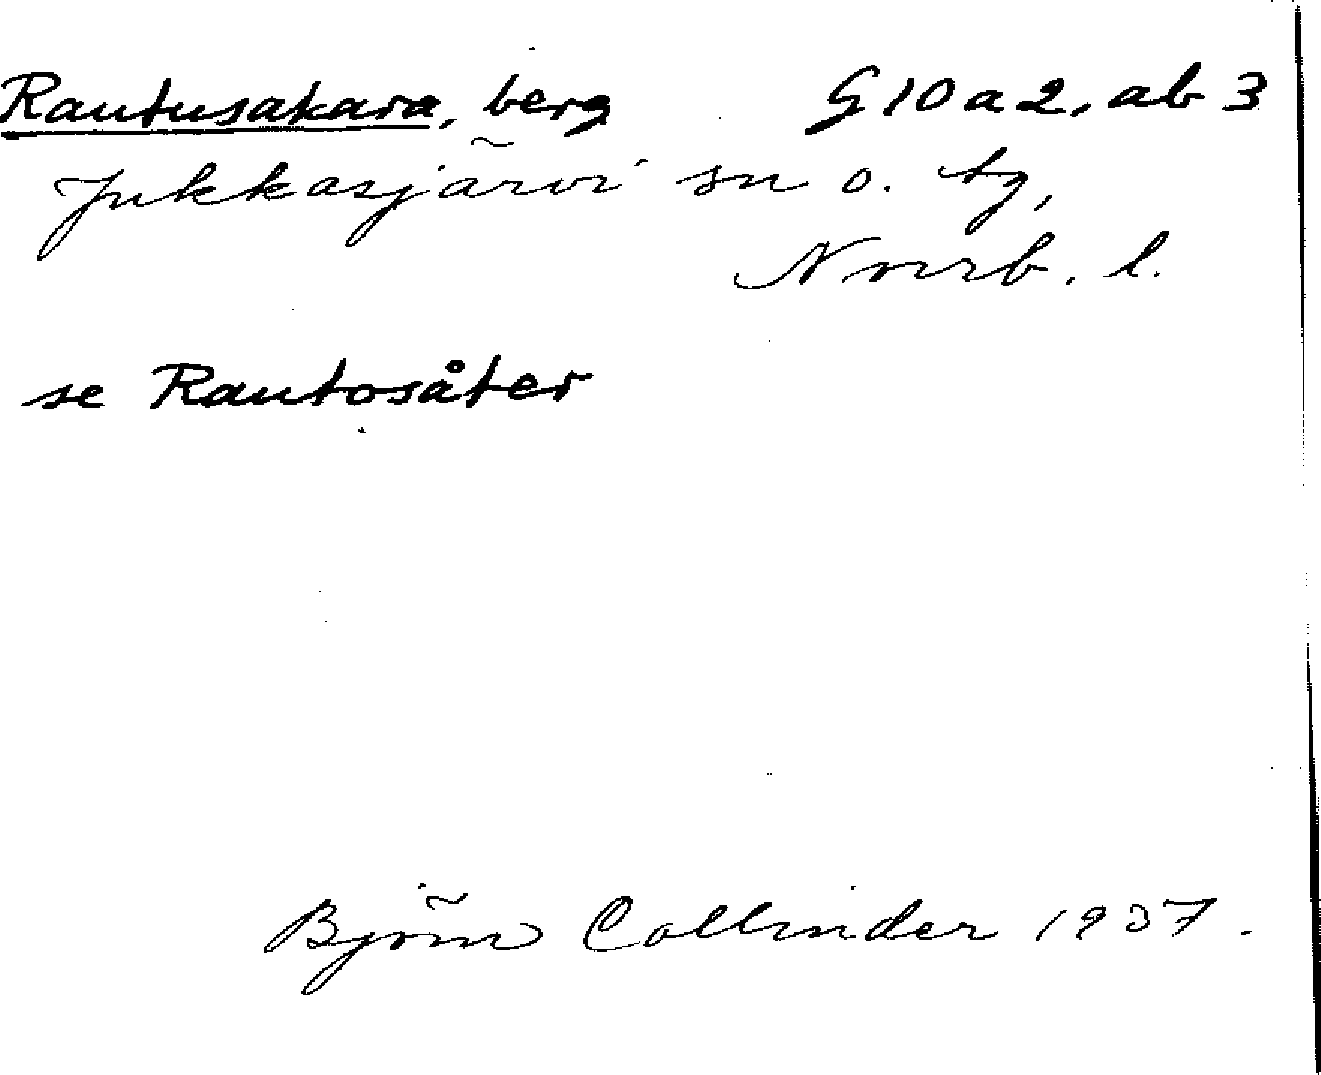 Rautusakara, berg G10a2, ab3
Jukkasjärvi sn o. tg,
Norrb. l.
se Rautosåter
Björn Collinder 1937.